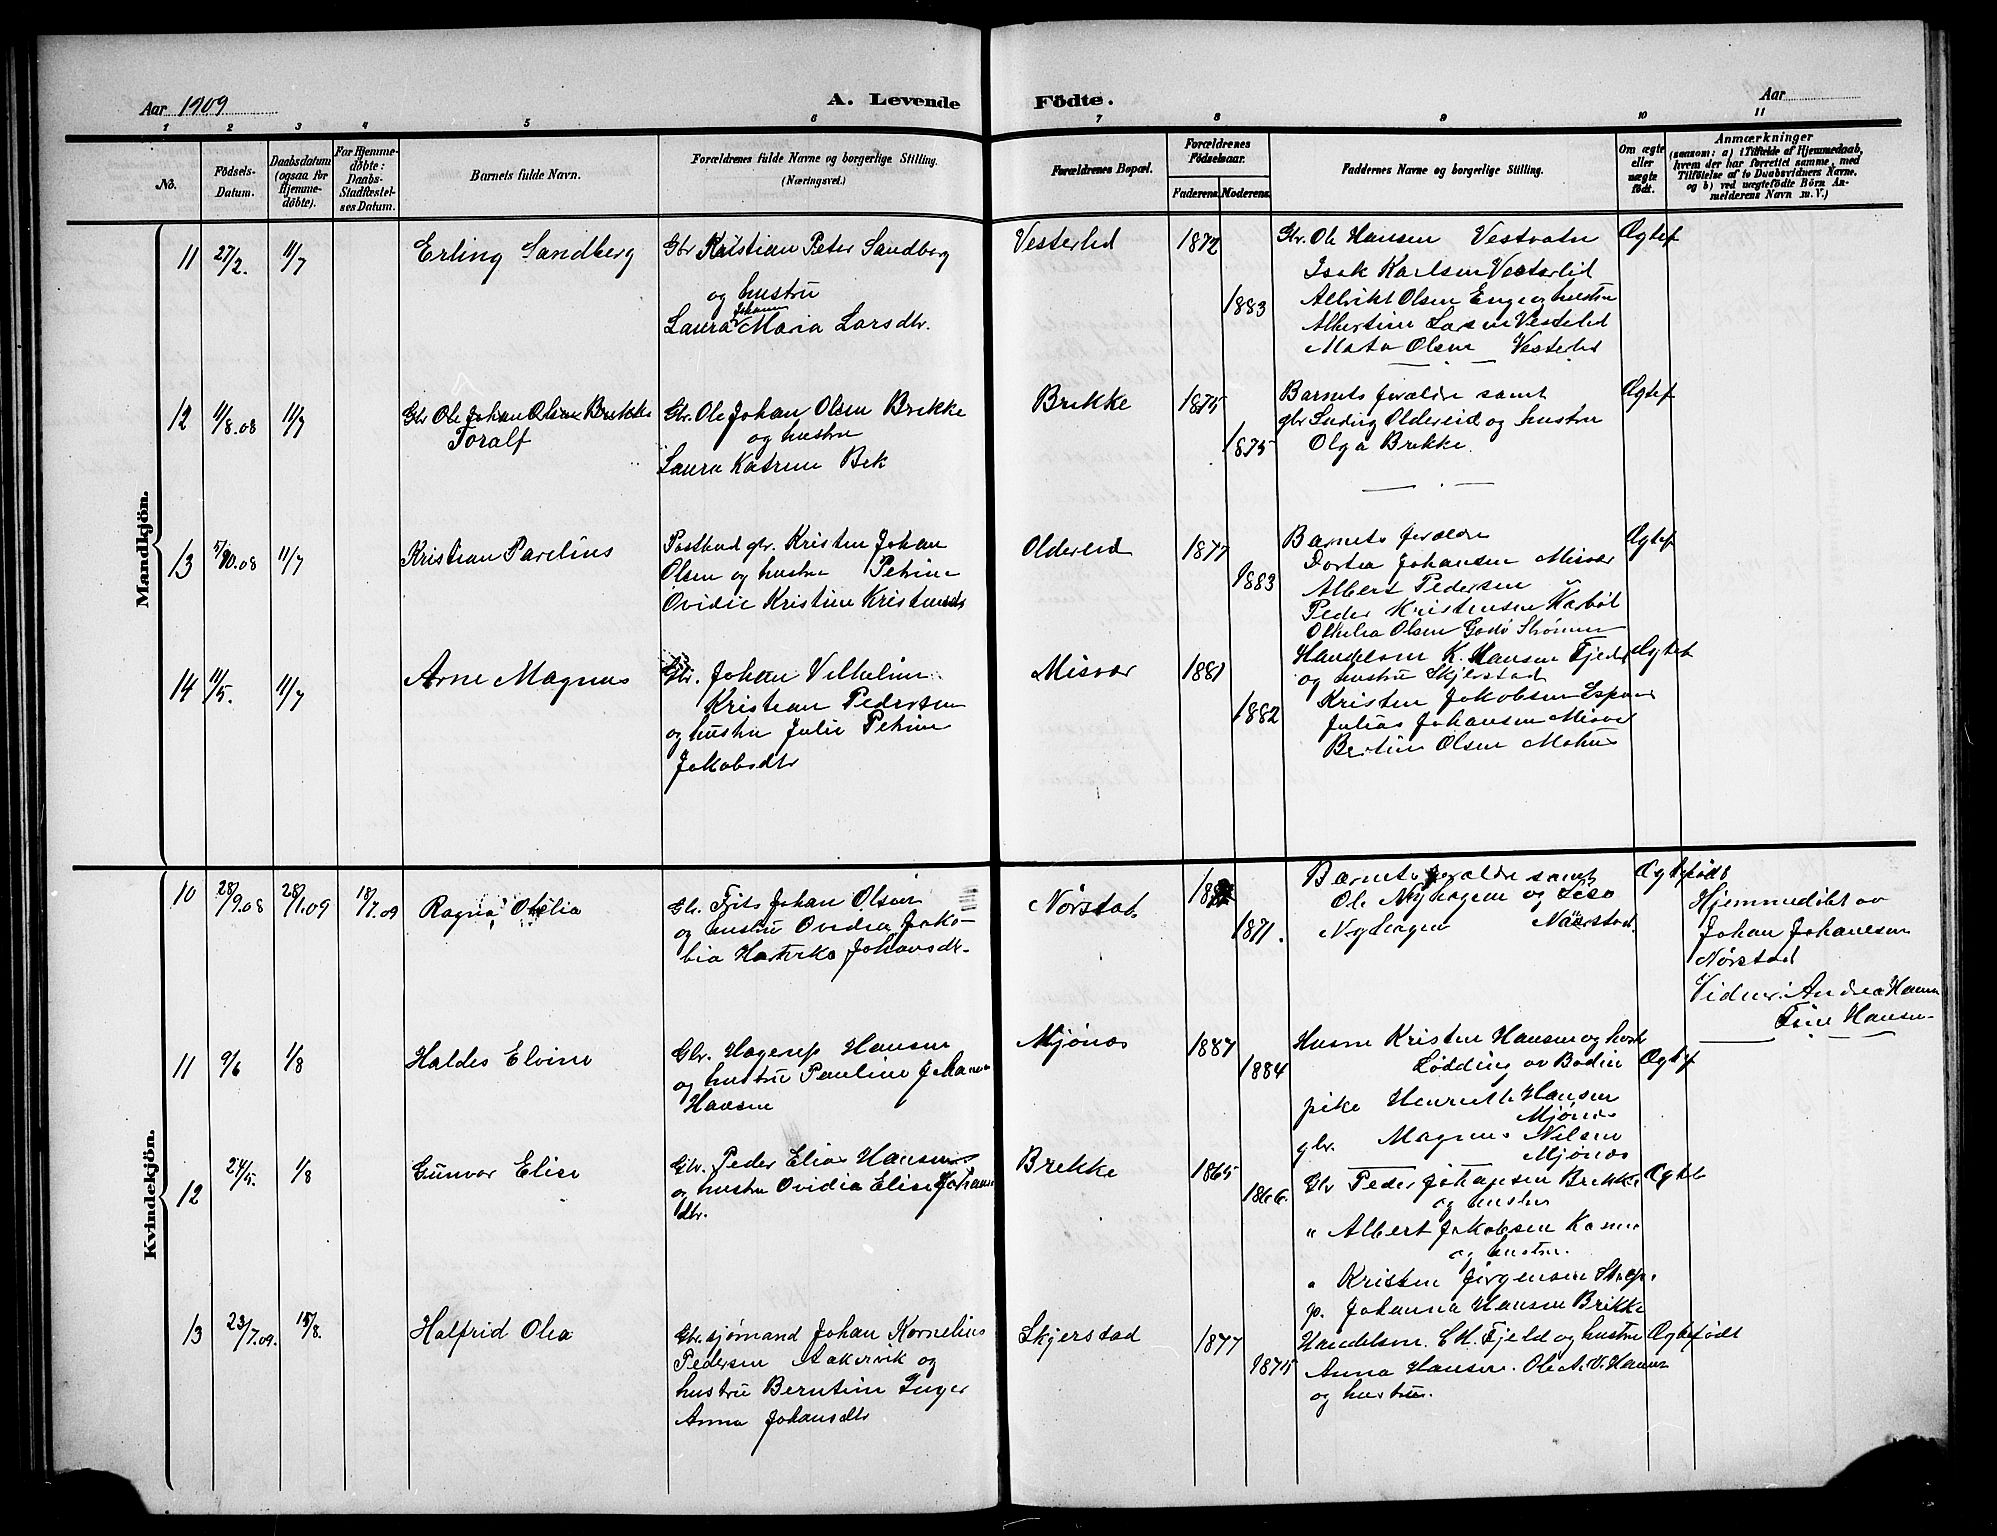 Aar 1909
A. Levende Födte.
Aar
1 2 3 4 5 6 7 8 9 10 11
No.
Födsels-Datum.
Daabsdatum (ogsaa for Hjemmedöbte).
For Hjemmedöbte: Daabs-Stadfæstelses Datum.
Barnets fulde Navn.
Forældrenes fulde Navne og borgerlige Stilling. (Næringsvei.)
Forældrenes Bopæl.
Forældrenes Födselsaar.
Faderens. Moderens.
Faddernes Navne og borgerlige Stilling.
Om ægte eller uægte födt.
Anmærkninger
(saasom: a) i Tilfælde af Hjemmedaab,
hvem der har forrettet samme, med
Tilföielse af to Daabsvidners Navne,
og b) ved uægtefödte Börn An-
melderens Navn m. V.)
Mandkjön.
11 27/2. 11/7 Erling Sandberg
Gbr Kristian Peter Sandberg
og hustru
Johanna
Laura Maria Larsdtr.
Vesterlid 1872 1883
Gbr. Ole Hansen Vestvatn
Isak Karlsen Vesterlid
Albrikt Olsen Enge og hustru
Albertine Larsen Vesterlid
Marta Olsen Vesterlid
Ægtef
12 11/8.08 11/7 Gbr Ole Johan Olsen Brekke
Toralf
Gbr. Ole Johan Olsen Brekke
og hustru
Laura Katrine Bek
Brekke 1875 1875
Barnets forældre samt
gbr Ludvig Oldereid og hustru
Olga Brekke.
Ægtef
13 5/10.08 11/7 Kristian Parelius
Postbud gbr. Kristen Johan
Olsen og hustru Petrine
Ovidie Kristine Kristensdtr
Oldereid 1877 1883
Barnets forældre
Dortea Johansen Misvær
Albert Pedersen
Peder Kristensen Karbøl
Othelia Olsen Godø Strømmen
Ægtef
14 11/5. 11/7 Arne Magnus
Gbr. Johan Vilhelm
Kristian Pedersen
og hustru Julie Petrine
Jakobsdtr
Misvær 1881 1882
Handelsm K. Hansen Fjeld
og hustru Skjerstad
Kristen Jakobsen
Julius Johansen Misvær
Bertine Olsen
Ægtef
Kvindekjön.
10 28/9.08 28/1.09 18/7.09 Ragna Otelia
Gbr. Frits Johan Olsen
og hustru Ovidia Jako-
bia Hartvika Johansdtr.
Nørstad 1871.
Barnets forældre samt
Ole Nyhagen og
Nyhagen Nærstad.
Ægtefødt
Hjemmedøbt av
Johan Johansen
Nørstad
Vidner: Andrea Hansen
Tine Hansen
11 9/6 1/8 Haldis Elvine
Gbr. Hagerup Hansen
og hustru Pauline Johanna
Hansen
Mjønes 1887 1884
Husm Kristen Hansen og hustr
Lødding av Bodin
pike Henriette Hansen
Mjønes
gbr. Magnus Nilsen
Mjønes
Ægtef
12 24/5. 1/8 Gunvor Elise
Gbr. Peder Elias Hansen
og hustru Ovidia Elise Johans
dtr.
Brekke 1865 1866.
Gbr Peder Johansen Brekke
og hustru
" Albert Jakobsen
og hustru.
" Kristen Jørgensen
p. Johanna Hansen Brekke
Ægtef
13 23/7.09. 15/8. Halfrid Olea
Gbr. sjømand Johan Kornelius
Pedersen Aakervik og
hustru Berntine Inger
Anna Johansdtr
Skjerstad 1877 1875
Handelsm. E H. Fjeld og hustru
Anna Hansen. Ole A. V. Hansen
og hustru.
Ægtefødt